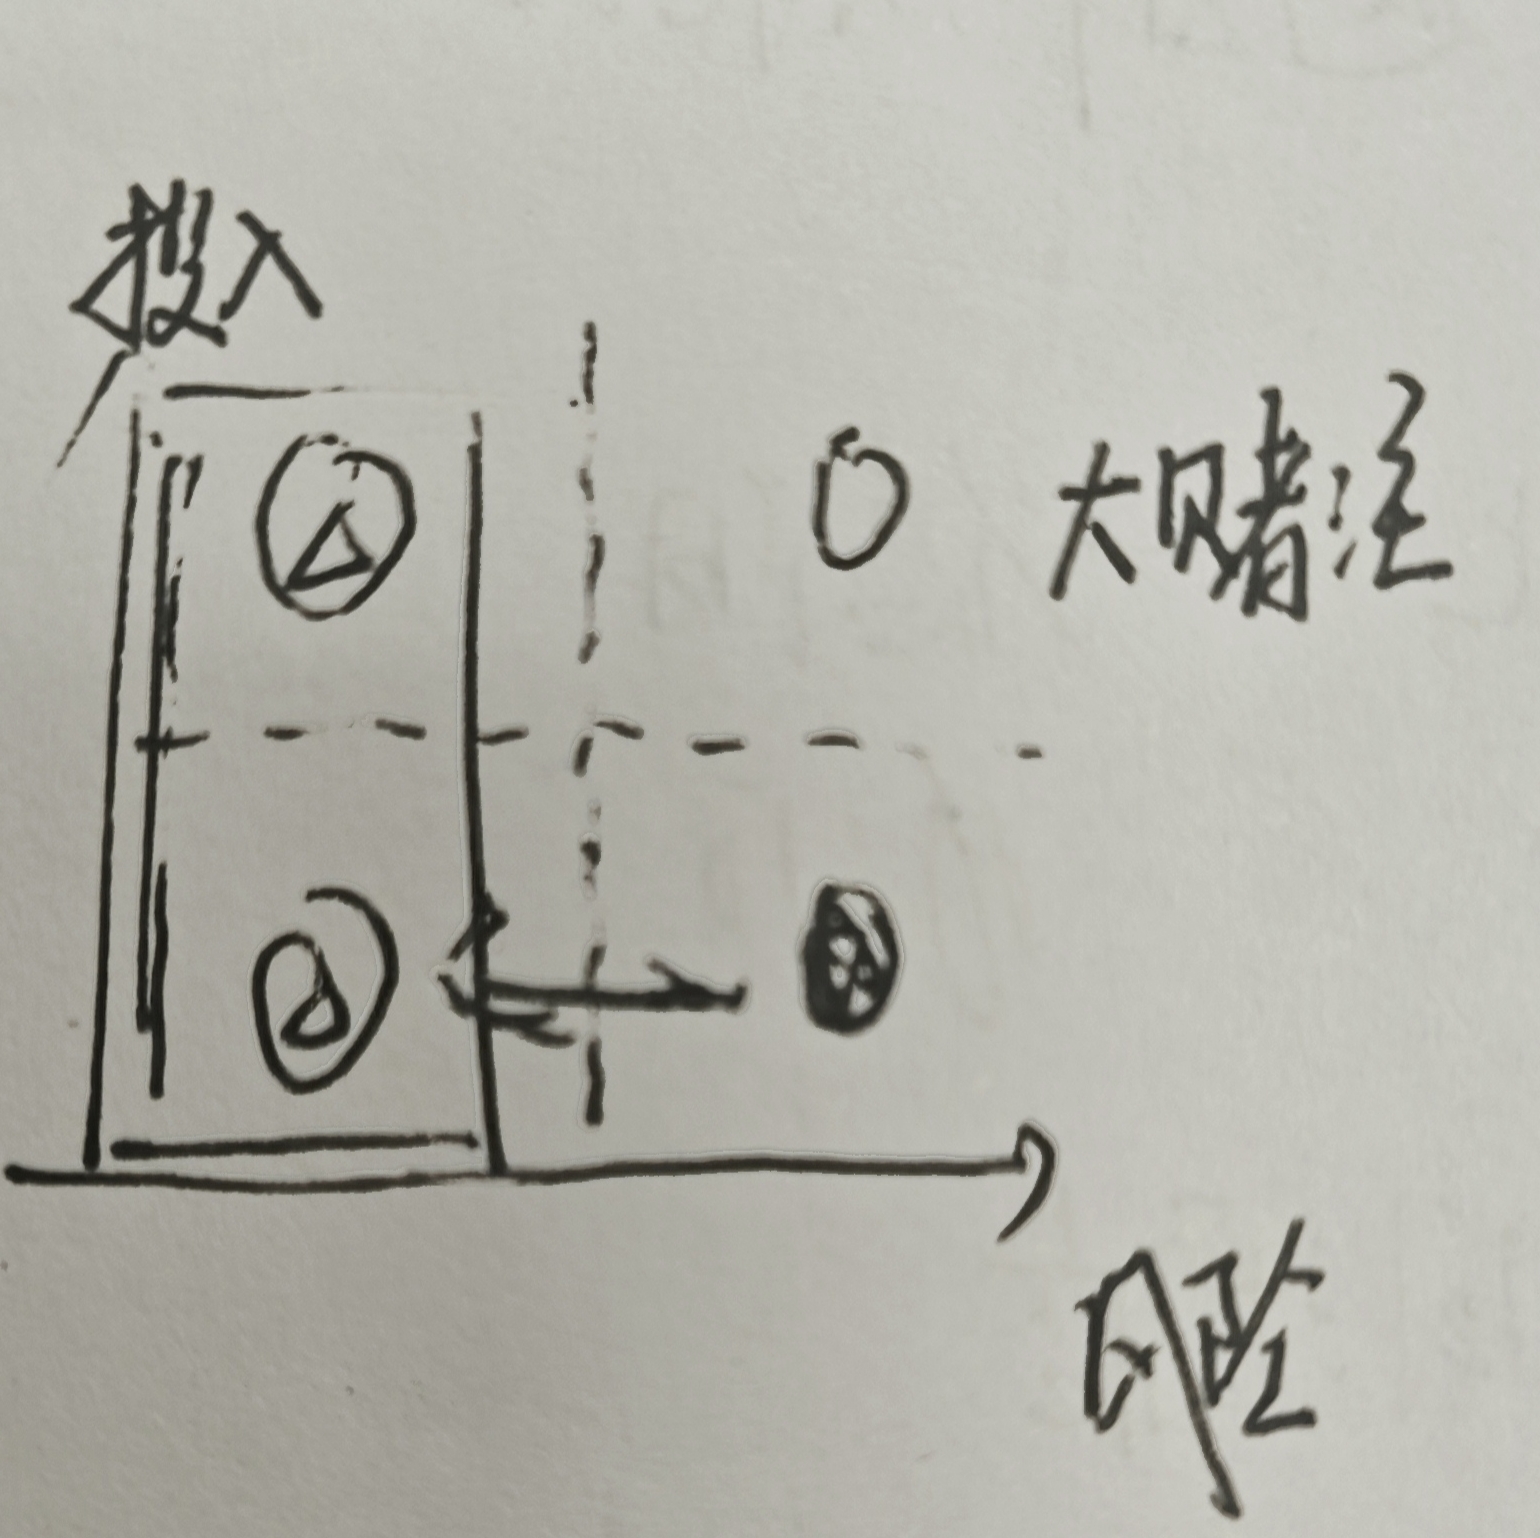 投入
大赌注
风险